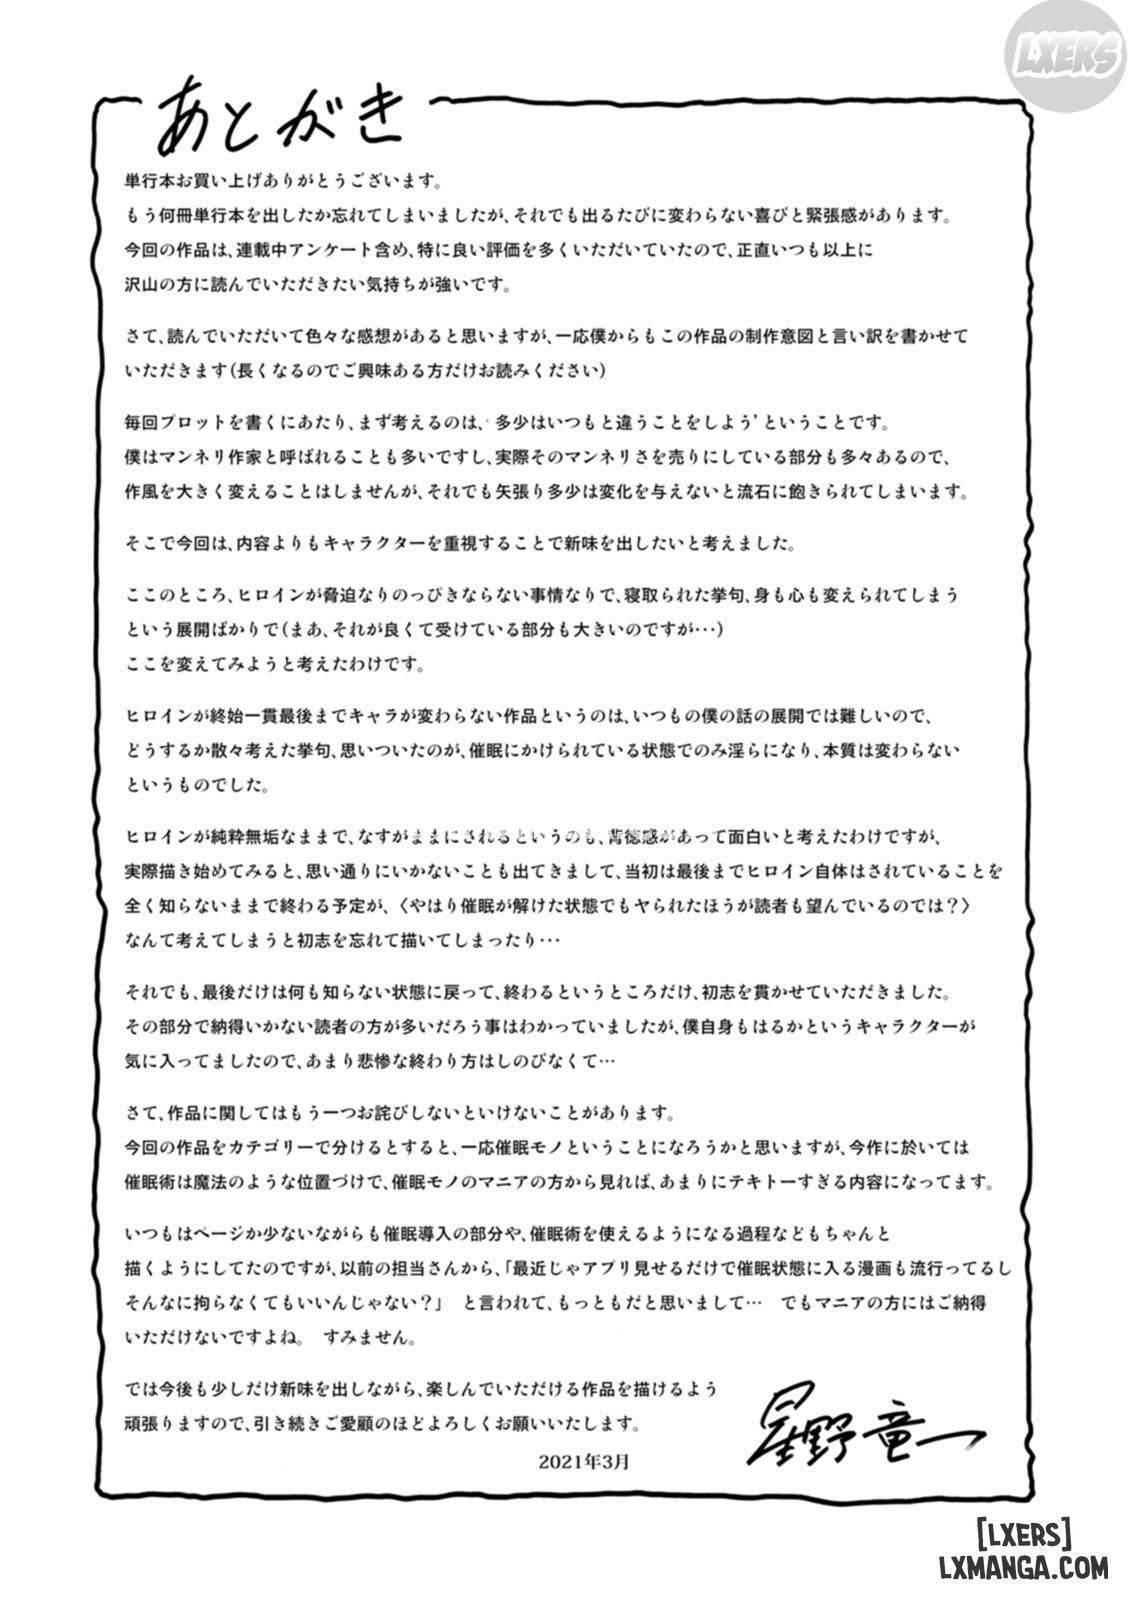 LXERS
あとがき
単行本お買い上げありがとうございます。
もう何冊単行本を出したか忘れてしまいましたが、それでも出るたびに変わらない喜びと緊張感があります。
今回の作品は、連載中アンケート含め、特に良い評価を多くいただいていたので、正直いつも以上に
沢山の方に読んでいただきたい気持ちが強いです。
さて、読んでいただいて色々な感想があると思いますが、一応僕からもこの作品の制作意図と言い訳を書かせて
いただきます(長くなるのでご興味ある方だけお読みください)
毎回プロットを書くにあたり、まず考えるのは、‘多少はいつもと違うことをしよう’ということです。
僕はマンネリ作家と呼ばれることも多いですし、実際そのマンネリさを売りにしている部分も多々あるので、
作風を大きく変えることはしませんが、それでも矢張り多少は変化を与えないと流石に飽きられてしまいます。
そこで今回は、内容よりもキャラクターを重視することで新味を出したいと考えました。
ここのところ、ヒロインが脅迫なりのっぴきならない事情なりで、寝取られた挙句、身も心も変えられてしまう
という展開ばかりで(まあ、それが良くて受けている部分も大きいのですが･･･)
ここを変えてみようと考えたわけです。
ヒロインが終始一貫最後までキャラが変わらない作品というのは、いつもの僕の話の展開では難しいので、
どうするか散々考えた挙句、思いついたのが、催眠にかけられている状態でのみ淫らになり、本質は変わらない
というものでした。
ヒロインが純粋無垢なままで、なすがままにされるというのも、背徳感があって面白いと考えたわけですが、
実際描き始めてみると、思い通りにいかないことも出てきまして、当初は最後までヒロイン自体はされていることを
全く知らないままで終わる予定が、〈やはり催眠が解けた状態でもヤられたほうが読者も望んでいるのでは？〉
なんて考えてしまうと初志を忘れて描いてしまったり･･･
それでも、最後だけは何も知らない状態に戻って、終わるというところだけ、初志を貫かせていただきました。
その部分で納得いかない読者の方が多いだろう事はわかっていましたが、僕自身もはるかというキャラクターが
気に入ってましたので、あまり悲惨な終わり方はしのびなくて…
さて、作品に関してはもう一つお詫びしないといけないことがあります。
今回の作品をカテゴリーで分けるとすると、一応催眠モノということになろうかと思いますが、今作に於いては
催眠術は魔法のような位置づけで、催眠モノのマニアの方から見れば、あまりにテキトーすぎる内容になってます。
いつもはページが少ないながらも催眠導入の部分や、催眠術を使えるようになる過程などもちゃんと
描くようにしてたのですが、以前の担当さんから、「最近じゃアプリ見せるだけで催眠状態に入る漫画も流行ってるし
そんなに拘らなくてもいいんじゃない？」　と言われて、もっともだと思いまして…　でもマニアの方にはご納得
いただけないですよね。　すみません。
では今後も少しだけ新味を出しながら、楽しんでいただける作品を描けるよう
頑張りますので、引き続きご愛顧のほどよろしくお願いいたします。
星野竜一
2021年3月
[LXERS]
LXMANGA.COM